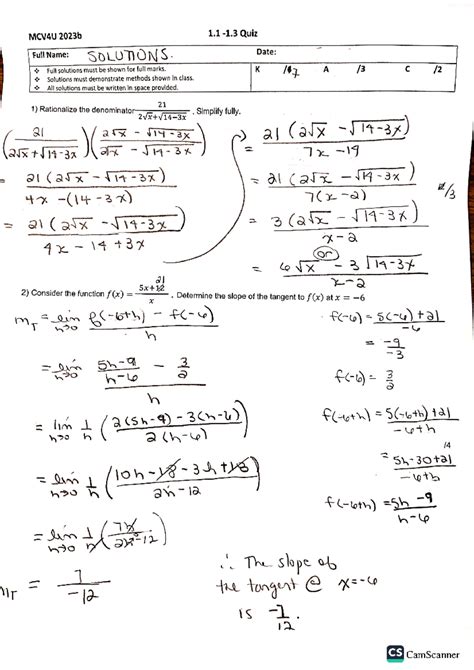 MCV4U 2023b
1.1 -1.3 Quiz
Full Name: SOLUTIONS.
Date:
Full solutions must be shown for full marks.
Solutions must demonstrate methods shown in class.
All solutions must be written in space provided.
K /7 A /3 C /2
1) Rationalize the denominator 21/(2√x+√14−3x). Simplify fully.
(21/(2√x+√14-3x))((2√x - √14-3x)/(2√x - √14-3x))
= 21(2√x - √14-3x)/(4x - (14-3x))
= 21(2√x - √14-3x)/(4x - 14 + 3x)
= 21(2√x - √14-3x)/(7x-14)
= 21(2√x - √14-3x)/(7(x-2))
/3
= 3(2√x - √14-3x)/(x-2)
(or)
= (6√x - 3√14-3x)/(x-2)
2) Consider the function f(x) = (5x+21)/x. Determine the slope of the tangent to f(x) at x = −6
m_T = lim h→0 (f(-6+h) - f(-6))/h
= lim h→0 ((5h-9)/(h-6) - 3/2)/h
= lim h→0 1/h ((2(5h-9) - 3(h-6))/(2(h-6)))
= lim h→0 1/h ((10h-18-3h+18)/(2h-12))
= lim h→0 1/h (7h/(2h-12))
m_T = 7/-12
f(-6) = (5(-6)+21)/-6
= -9/-6
f(-6) = 3/2
f(-6+h) = (5(-6+h)+21)/(-6+h)
= (5h-30+21)/(-6+h)
f(-6+h) = (5h-9)/(h-6)
∴ The slope of
the tangent @ x=-6
is -7/12.
CS CamScanner